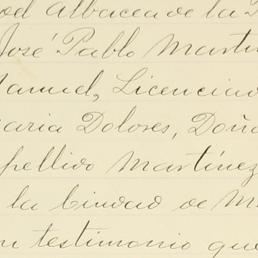 Albacea de la
José Pablo Martín
Manuel, Licenciad
aria Dolores, Doña
pellido Martínez
la Ciudad de M
un testimonio que